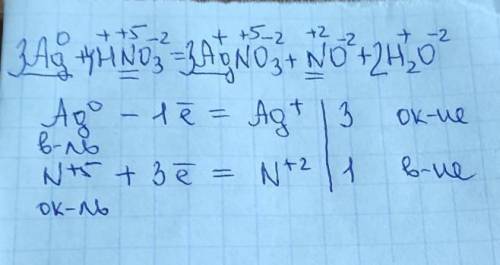 3Ag⁰ + 4H⁺N⁺⁵O₃⁻² = 3Ag⁺N⁺⁵O₃⁻² + N⁺²O⁻² + 2H₂⁺O⁻²
Ag⁰ - 1ē = Ag⁺ | 3 ок-ие
в-ль
N⁺⁵ + 3ē = N⁺² | 1 в-ие
ок-ль